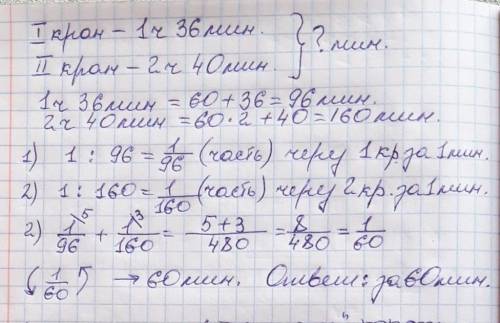 I кран – 1ч 36мин.
II кран – 2ч 40мин. } ? мин.
1ч 36мин = 60+36=96мин.
2ч 40мин = 60·2+40=160мин.
1) 1 : 96 = 1/96 (часть) черу 1кр. за 1мин.
2) 1 : 160 = 1/160 (часть) черу 2кр. за 1мин.
2) 1/96 ⁵ + 1/160 ³ = 5+3/480 = 8/480 = 1/60
(1/60) → 60мин. Ответ: за 60мин.